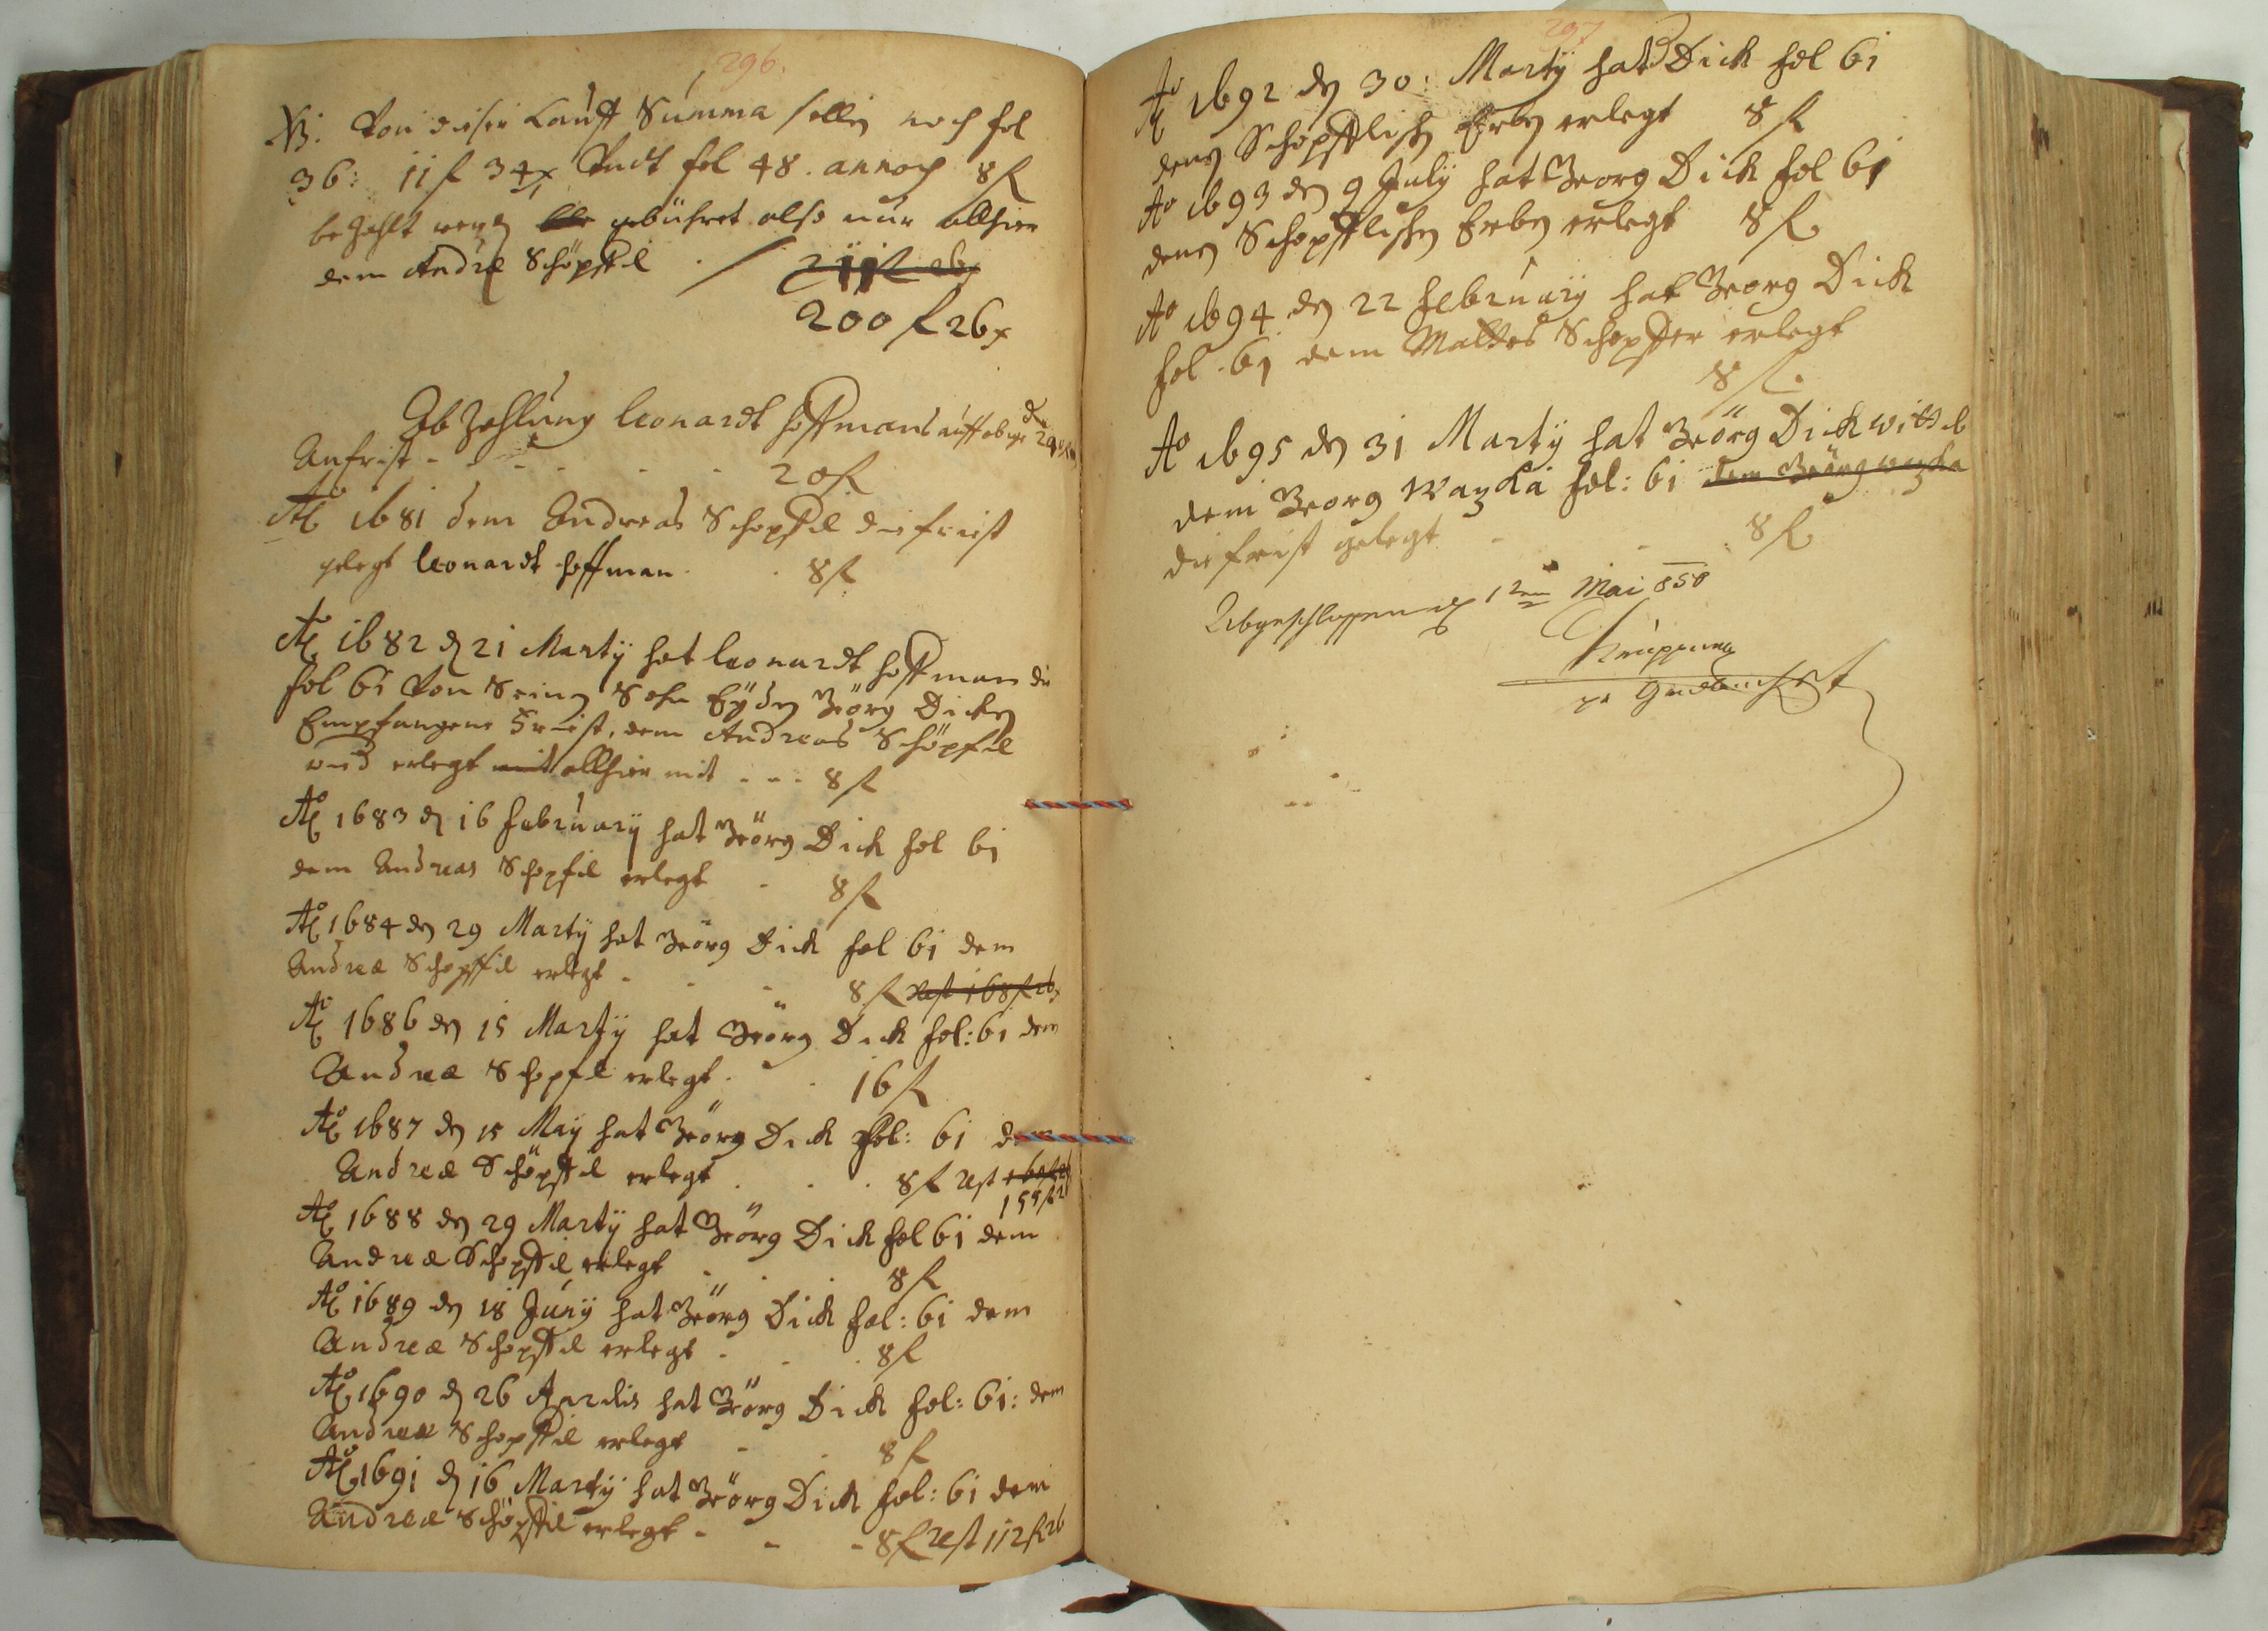 296.
NB: Von dieser Kauff Summa sollen noch fol
36: 11 f 34 x Vndt fol 48. annoch 8 f
bezahlt werden gebühret also nur allhier
dem Andræ Schöpffel
211 f 26 x
200 f 26 x
Abzahlung Leonardt Hoffmans auff obige
Anfrist - - - - 20 f
Ao 1681 dem Andreas Schopffel die frist
gelegt Leonardt Hoffman . . 8 f
Ao 1682 den 21 Marty hat Leonardt Hoffman die
fol 61 Von Seinen Sohn Eyden Geörg Dicken
Empfangene Frist, dem Andreas Schöpfel
erlegt mit allhier mit - - - 8 f
Ao 1683 den 16 February hat Geörg Dick fol 61
dem Andreas Schopfel erlegt - 8 f
Ao 1684 den 29 Marty hat Geörg Dick fol 61 dem
Andreæ Schopffel erlegt - - - 8 f Rest 168 f 26 x
Ao 1686 den 15 Marty hat Geörg Dick fol: 61 dem
Andreæ Schopfel erlegt . . . 16 f
Ao 1687 den 15 May hat Geörg Dick fol: 61 dem
Andreæ Schöpffel erlegt . . . 8 f Rest
Ao 1688 den 29 Marty hat Geörg Dick fol 61 dem
Andreæ Schopffel erlegt . . . 8 f
Ao 1689 den 18 Juny hat Geörg Dick fol: 61 dem
Andreæ Schopffel erlegt - - . 8 f
Ao 1690 den 26 Aprilis hat Geörg Dick fol: 61: dem
Andreæ Schopffel erlegt - . 8 f
Ao 1691 den 16 Marty hat Geörg Dick fol: 61 dem
Andreæ Schöpffel erlegt - - - 8 f Rest 112 f 26
297
Ao 1692 den 30: Marty hat Dick fol 61
denen Schopfflischen Erben erlegt 8 f
Ao 1693 den 9 July hat Georg Dick fol 61
denen Schopfflischen Erben erlegt 8 f
Ao 1694 den 22 February hat Georg Dick
fol. 61 dem Mattes Schopffer erlegt
8 f.
Ao 1695 den 31 Marty hat Geörg Dick wittib
dem Georg Wazka fol: 61 dem Geörg wazka
die frist gelegt - - . 8 f
Abgeschlossen den 12ten Mai 858